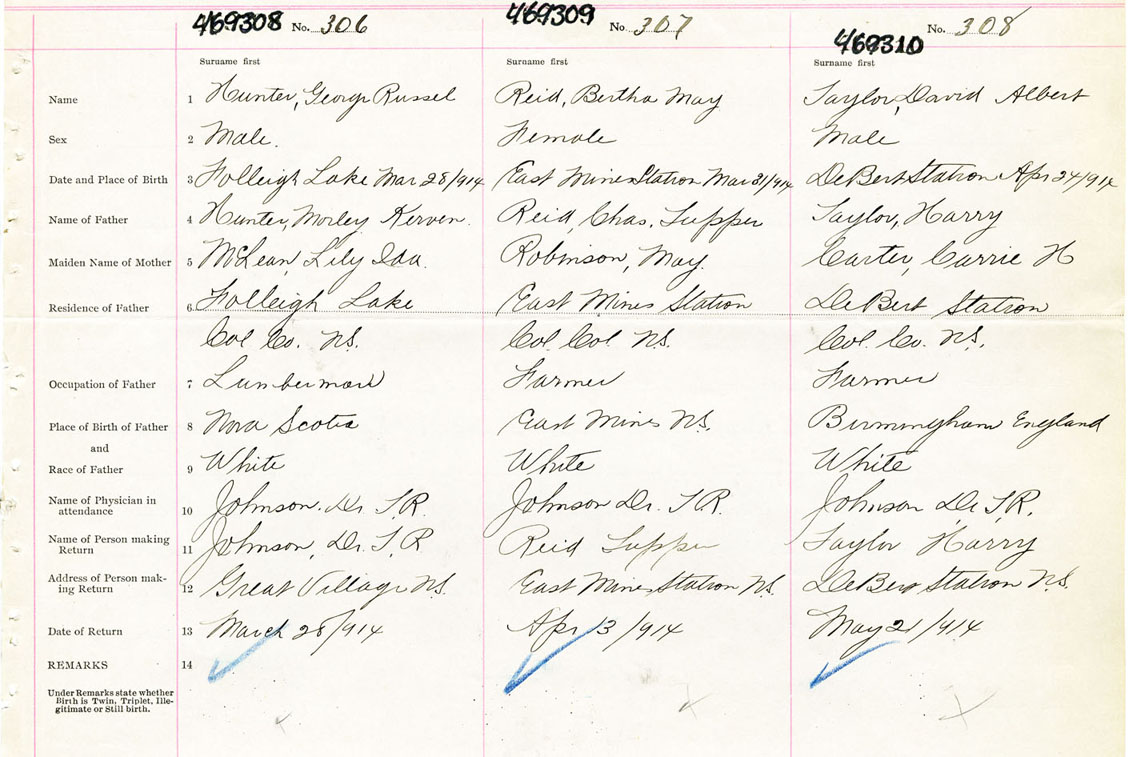 469308 No. 306 469309 No. 307 469310 No. 308
Surname first Surname first Surname first
Name 1 Hunter, George Russel Reid, Bertha May Taylor, David Albert
Sex 2 Male. Female Male
Date and Place of Birth 3 Folleigh Lake Mar 28/914 East Mines Station Mar 31/914 DeBert Station Apr 24/914
Name of Father 4 Hunter, Morley Kerven. Reid, Chas. Tupper Taylor, Harry
Maiden Name of Mother 5 McLean, Lily Ida. Robinson, May. Carter, Carrie H
Residence of Father 6 Folleigh Lake East Mines Station DeBert Station
Col Co. N.S. Col. Col. N.S. Col. Co. N.S.
Occupation of Father 7 Lumberman Farmer Farmer
Place of Birth of Father 8 Nova Scotia East Mines N.S. Birmingham England
and
Race of Father 9 White White White
Name of Physician in
attendance 10 Johnson. Dr. T.R. Johnson Dr. T.R. Johnson Dr T.R.
Name of Person making
Return 11 Johnson, Dr. T.R Reid Tupper Taylor Harry
Address of Person mak-
ing Return 12 Great Village N.S. East Mines Station N.S. DeBert Station N.S.
Date of Return 13 March 28/914 Apr 3/914 May 21/914
REMARKS 14
Under Remarks state whether
Birth is Twin, Triplet, Ille-
gitimate or Still birth.